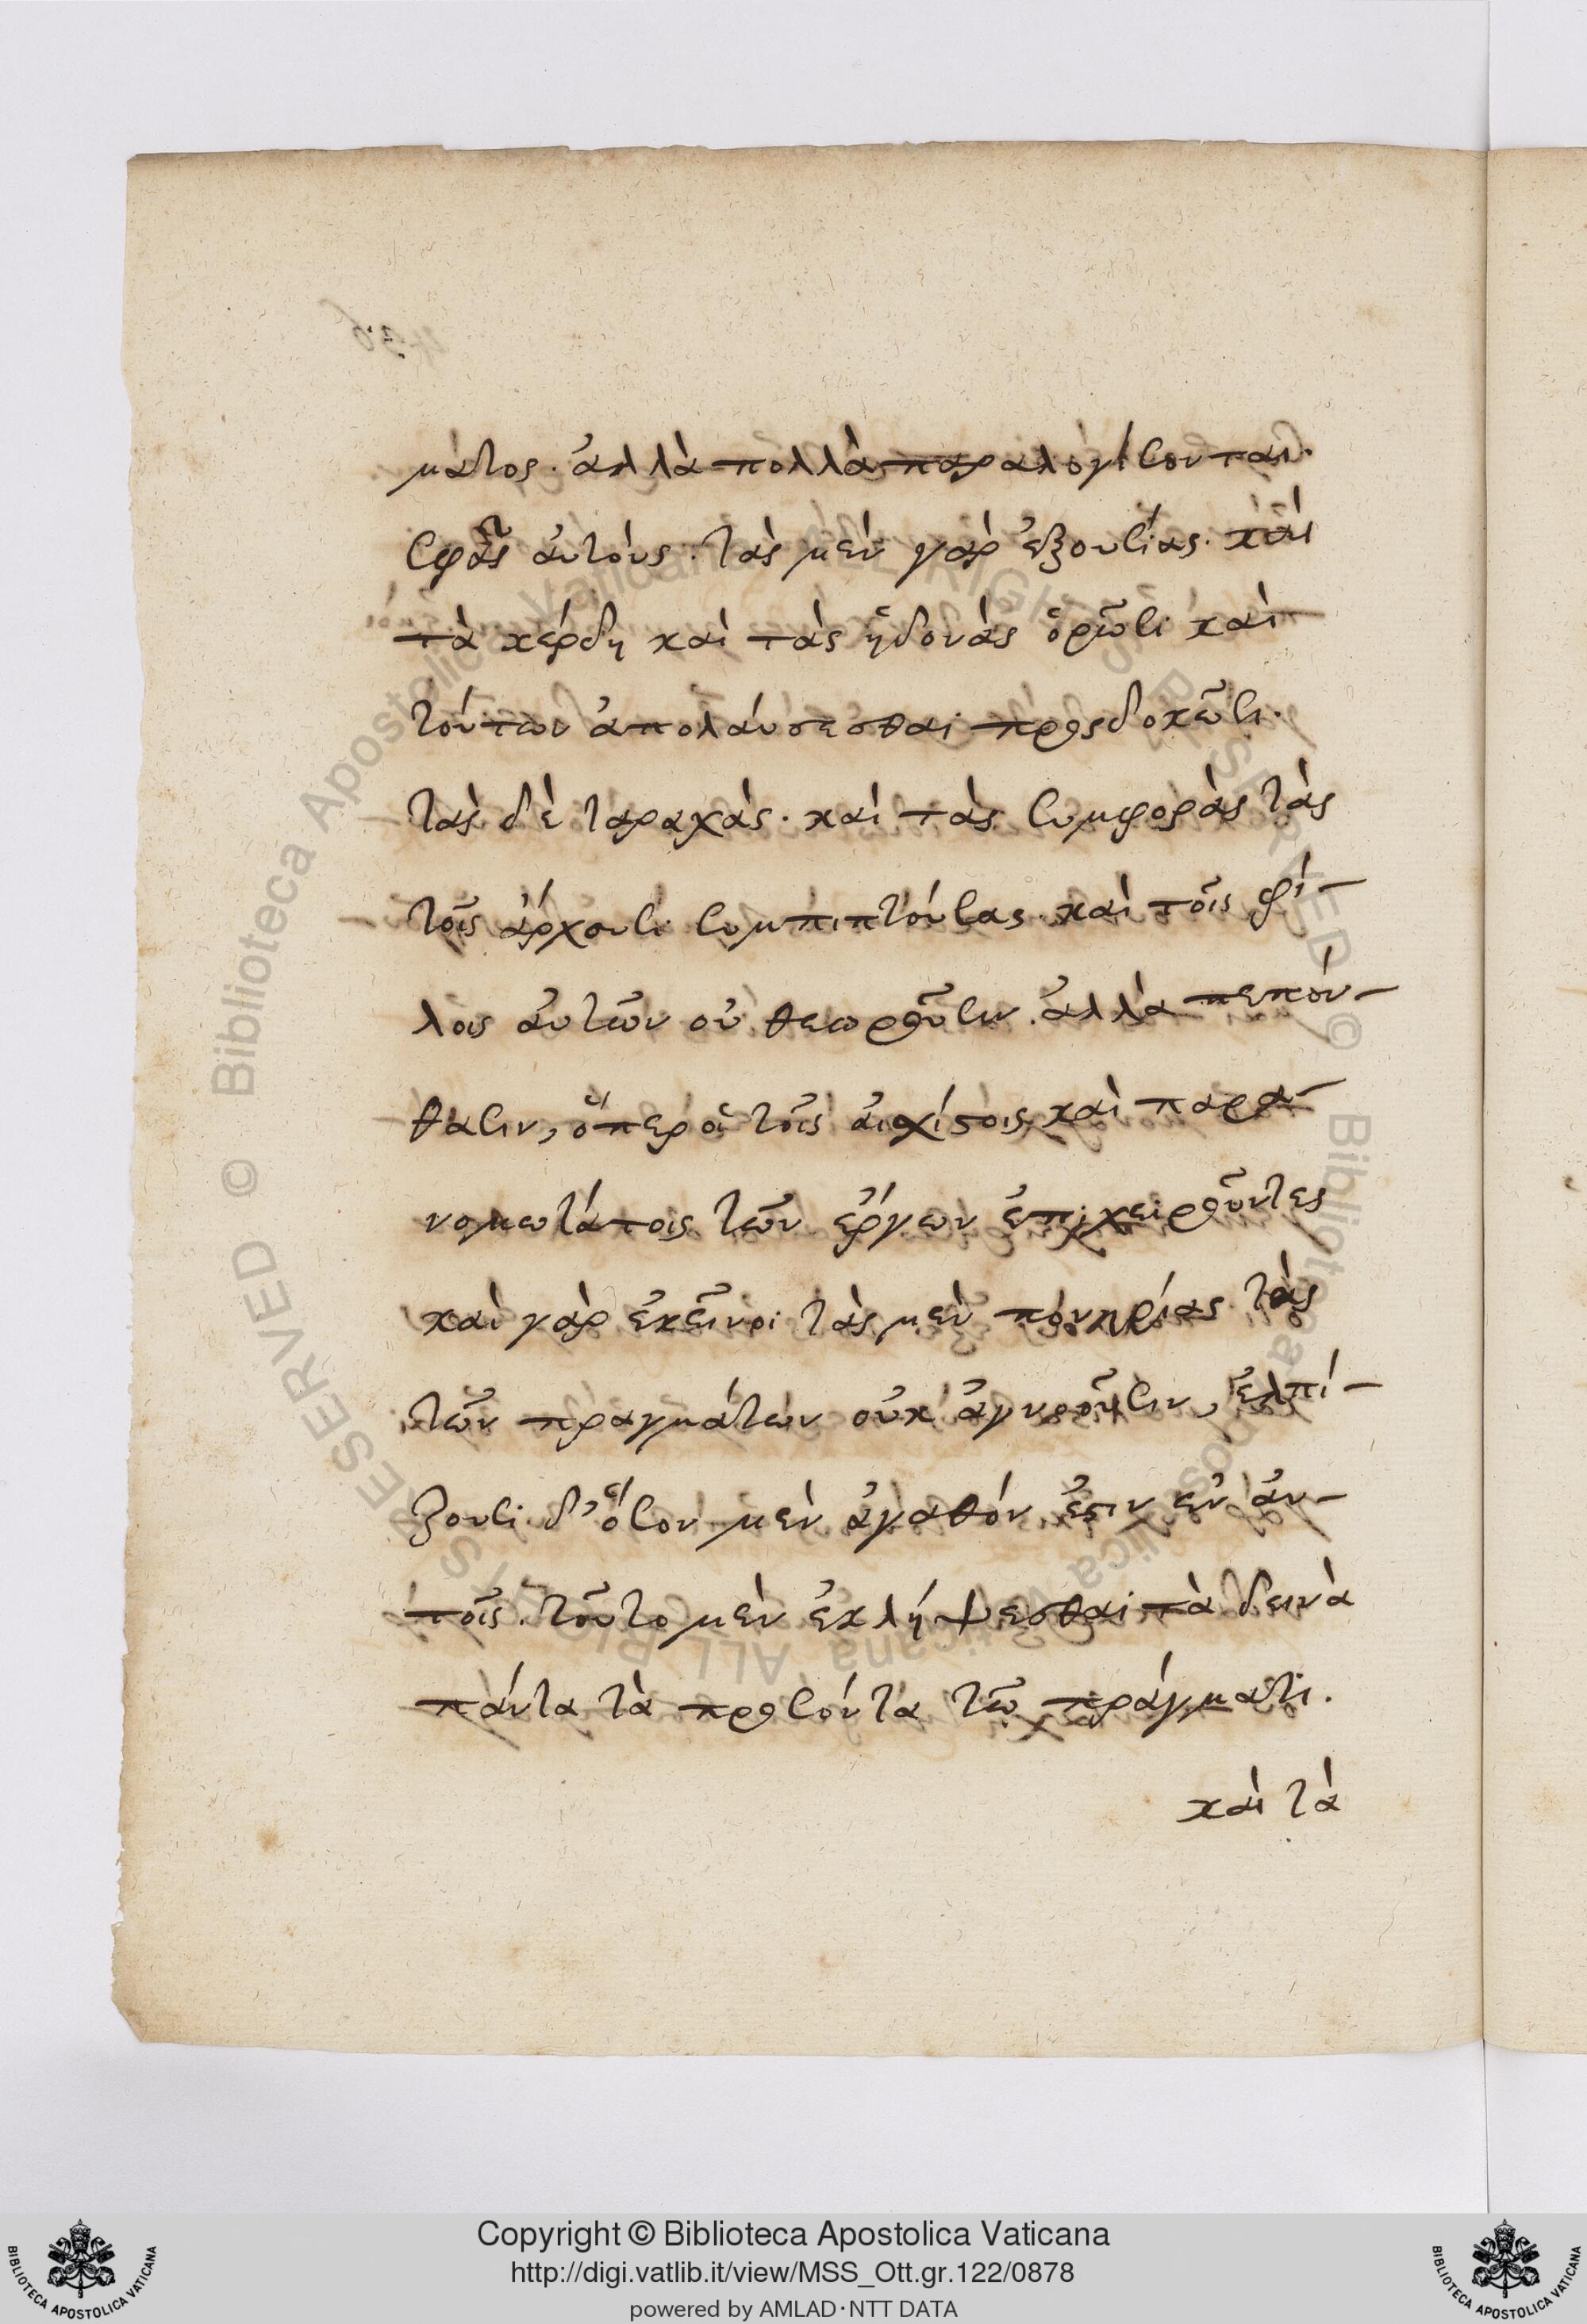 μάτος. ἀλλὰ πολλὰ παραλογίσονται.
σφᾶς ἀυτόυς. τὰς μὲν γὰρ ἐξουσίας. καὶ
τὰ κέρδη καὶ τὰς ἡδονὰς ὁρῶσι καὶ
τούτων ἀπολάυσεσθαι προςδοκῶσι.
τὰς δὲ ταραχὰς. καὶ τὰς συμφορὰς τὰς
τοῖς ἄρχουσι συμπιπτόυσας. καὶ τοῖς φί-
λοις ἀυτῶν οὐ θεωροῦσιν. ἀλλὰ πεπόν-
θασιν, ὅπερ οἱ τοῖς ἀιχίστοις καὶ παρα-
νομωτάτοις τῶν ἔργων ἐπιχειροῦντες
καὶ γὰρ ἐκεῖνοι τὰς μὲν πονηρίας τὰς
τῶν πραγμάτων οὐκ ἀγνοοῦσιν, ἐλπί-
ζουσι δ' ὅσον μὲν ἀγαθόν ἐστιν ἐν ἀυ-
τοῖς. τοῦτο μὲν ἐκλήψεσθαι τὰ δεινὰ
πάντα τὰ προσόντα τῶ πράγματι.
καὶ τὰ
Copyright © Biblioteca Apostolica Vaticana
http://digi.vatlib.it/view/MSS_Ott.gr.122/0878
powered by AMLAD·NTT DATA
BIBLIOTECA APOSTOLICA VATICANA
BIBLIOTECA APOSTOLICA VATICANA